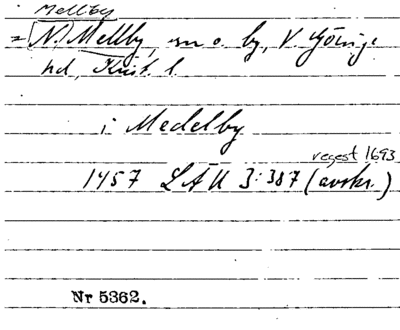 i Mellby
= N. Mellby, sn o. by, V. Göinge
hd, Krist. l.
i Medelby
regest 1693
1457 LÄU 3:387 (avskr.)
Nr 5362.